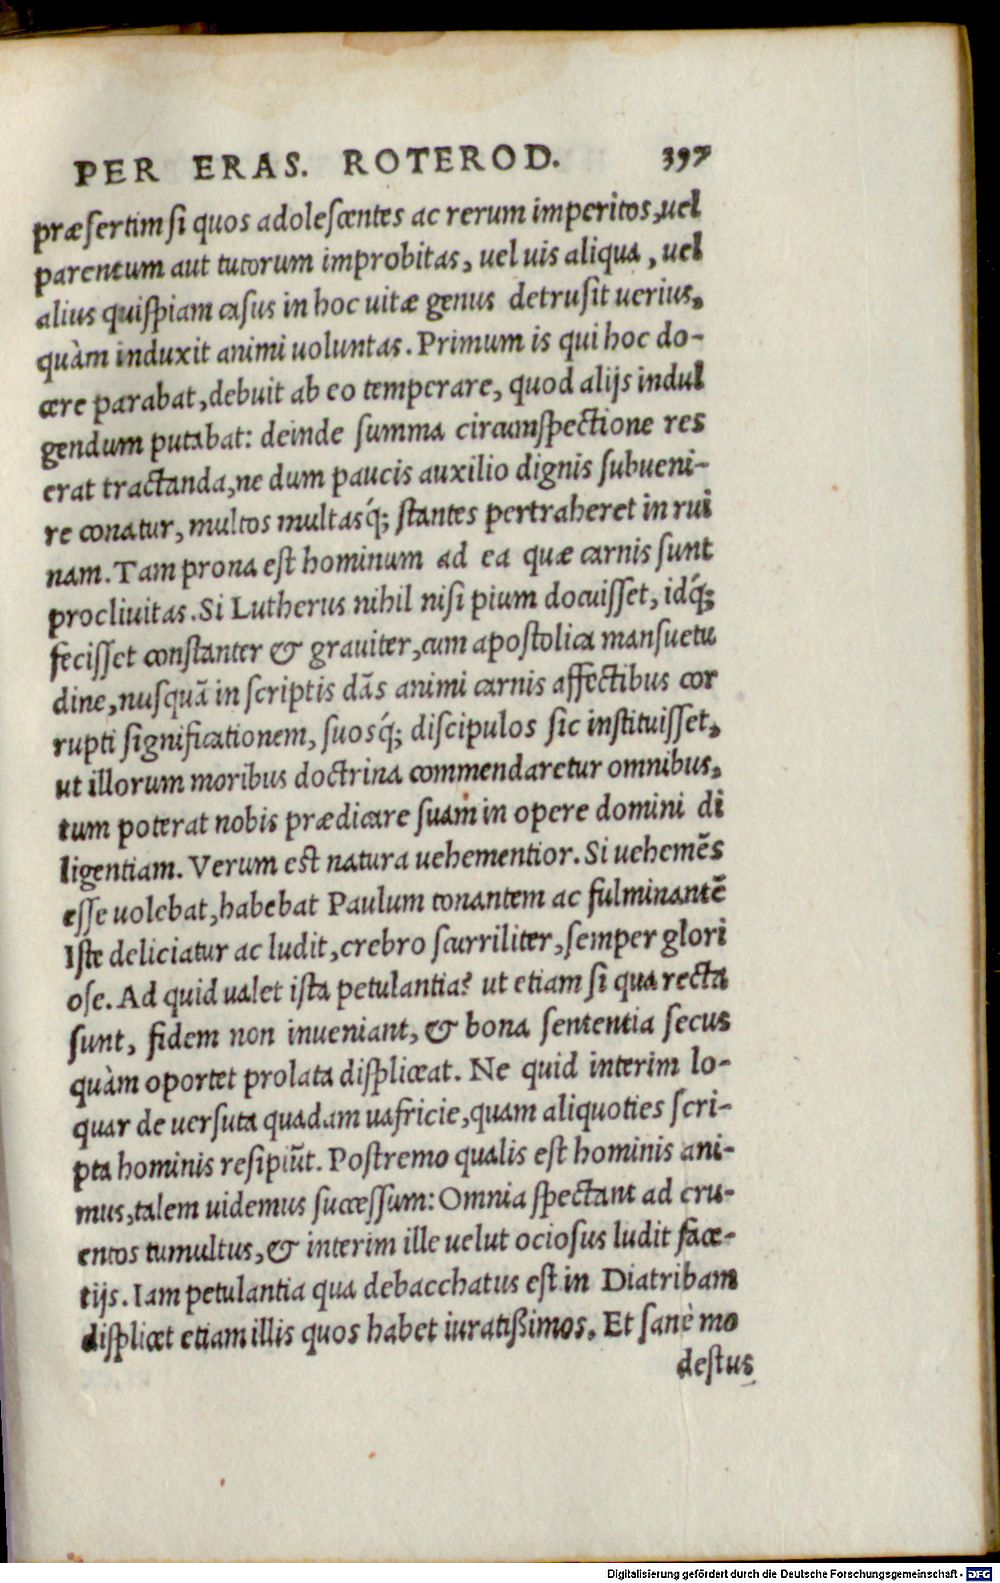 PER ERAS. ROTEROD. 397
præsertim si quos adolescentes ac rerum imperitos, uel
parentum aut tutorum improbitas, uel uis aliqua, uel
alius quispiam casus in hoc uitæ genus detrusit uerius,
quàm induxit animi uoluntas. Primum is qui hoc do-
cere parabat, debuit ab eo temperare, quod alijs indul
gendum putabat: deinde summa circumspectione res
erat tractanda, ne dum paucis auxilio dignis subueni-
re conatur, multos multasq́; stantes pertraheret in rui
nam. Tam prona est hominum ad ea quæ carnis sunt
procliuitas. Si Lutherus nihil nisi pium docuisset, idq́;
fecisset constanter & grauiter, cum apostolica mansuetu
dine, nusquā in scriptis dās animi carnis affectibus cor
rupti significationem, suosq́; discipulos sic instituisset,
ut illorum moribus doctrina commendaretur omnibus,
tum poterat nobis prædicare suam in opere domini di
ligentiam. Verum est natura uehementior. Si uehemēs
esse uolebat, habebat Paulum tonantem ac fulminantē
Iste deliciatur ac ludit, crebro scurriliter, semper glori
ose. Ad quid ualet ista petulantia? ut etiam si qua recta
sunt, fidem non inueniant, & bona sententia secus
quàm oportet prolata displiceat. Ne quid interim lo-
quar de uersuta quadam uafricie, quam aliquoties scri-
pta hominis resipiūt. Postremo qualis est hominis ani-
mus, talem uidemus successum: Omnia spectant ad cru-
entos tumultus, & interim ille uelut ociosus ludit face-
tijs. Iam petulantia qua debacchatus est in Diatribam
displicet etiam illis quos habet iuratißimos. Et sanè mo
destus
Digitalisierung gefördert durch die Deutsche Forschungsgemeinschaft - DFG